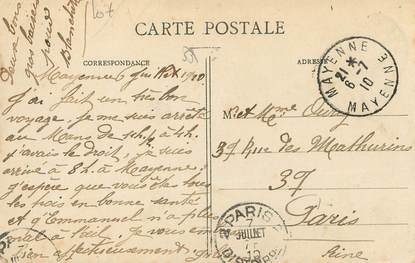 107
CARTE POSTALE
CORRESPONDANCE
ADRESSE
Mayenne 6 juillet 1910
J'ai fait un très bon
voyage, je me suis arrêté
au Mans de
j'avais le droit, je suis
arrivé à 8h. à Mayenne
j'espère que vous êtes tous
les trois en bonne santé
et q'Emmanuel n'a plus
mal à l'œil. Je vous em
affectueusement
deux bons
gros baisers
Blanche
M. et Mme
37 Rue des Mathurins
37
Paris
Seine
MAYENNE
21
6-7
10
MAYENNE
PARIS
7
JUILLET